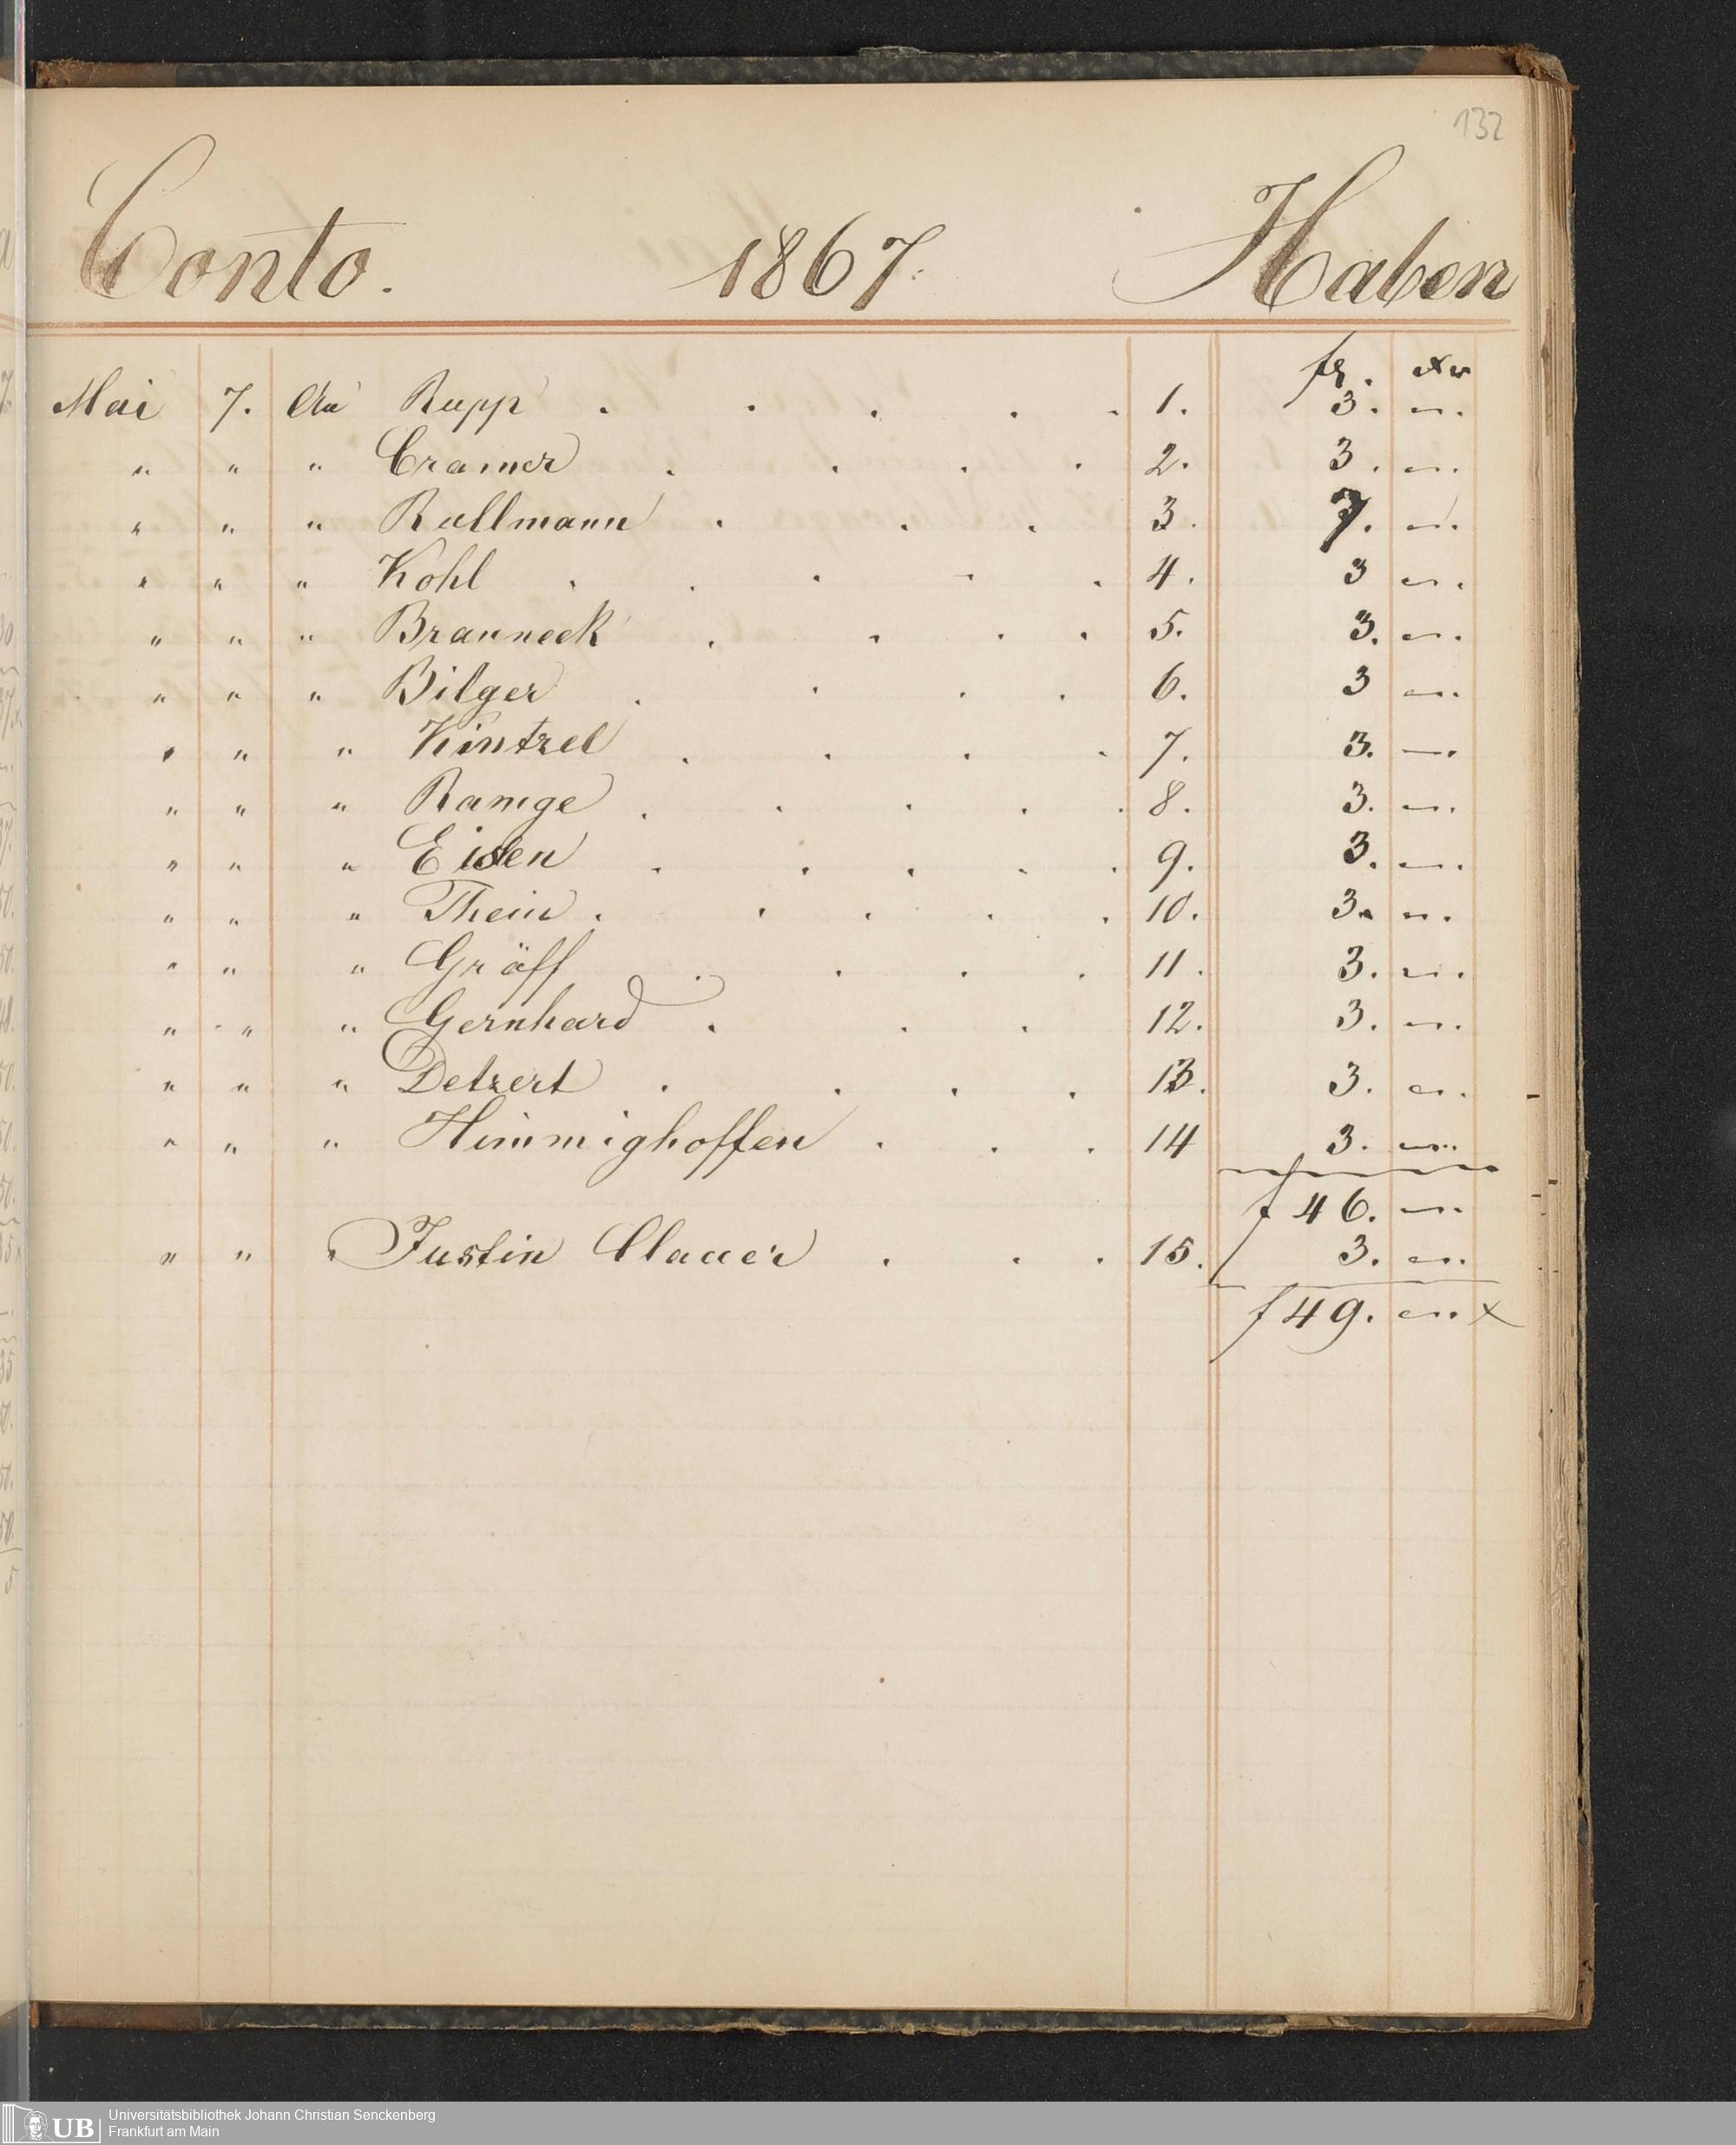 132
Conto. 1867. Haben
fl. xr
Mai 7. An Rupp . . . . . 1. 3. „.
„ „ „ Cramer . . . . 2. 3. „.
„ „ „ Rullmann . . . 3. 7. „.
„ „ „ Kohl . . . . . 4. 3 „.
„ „ „ Brauneck . . . . 5. 3. „.
„ „ „ Bilger . . . . 6. 3 „.
„ „ „ Kintzel . . . . 7. 3. —.
„ „ „ Ramge . . . . . 8. 3. „.
„ „ „ Eisen . . . . . 9. 3. „.
„ „ „ Thein . . . . . 10. 3. „.
„ „ „ Gräff . . . . 11. 3. „.
„ „ „ Gernhard . . . 12. 3. „.
„ „ „ Detzert . . . . 13. 3. „.
„ „ „ Himmighoffen . . . 14 3. „.
f 46. „.
„ „ „ Justin Clauer . . . 15. 3. „.
f 49. „. x
UB Universitätsbibliothek Johann Christian Senckenberg
Frankfurt am Main